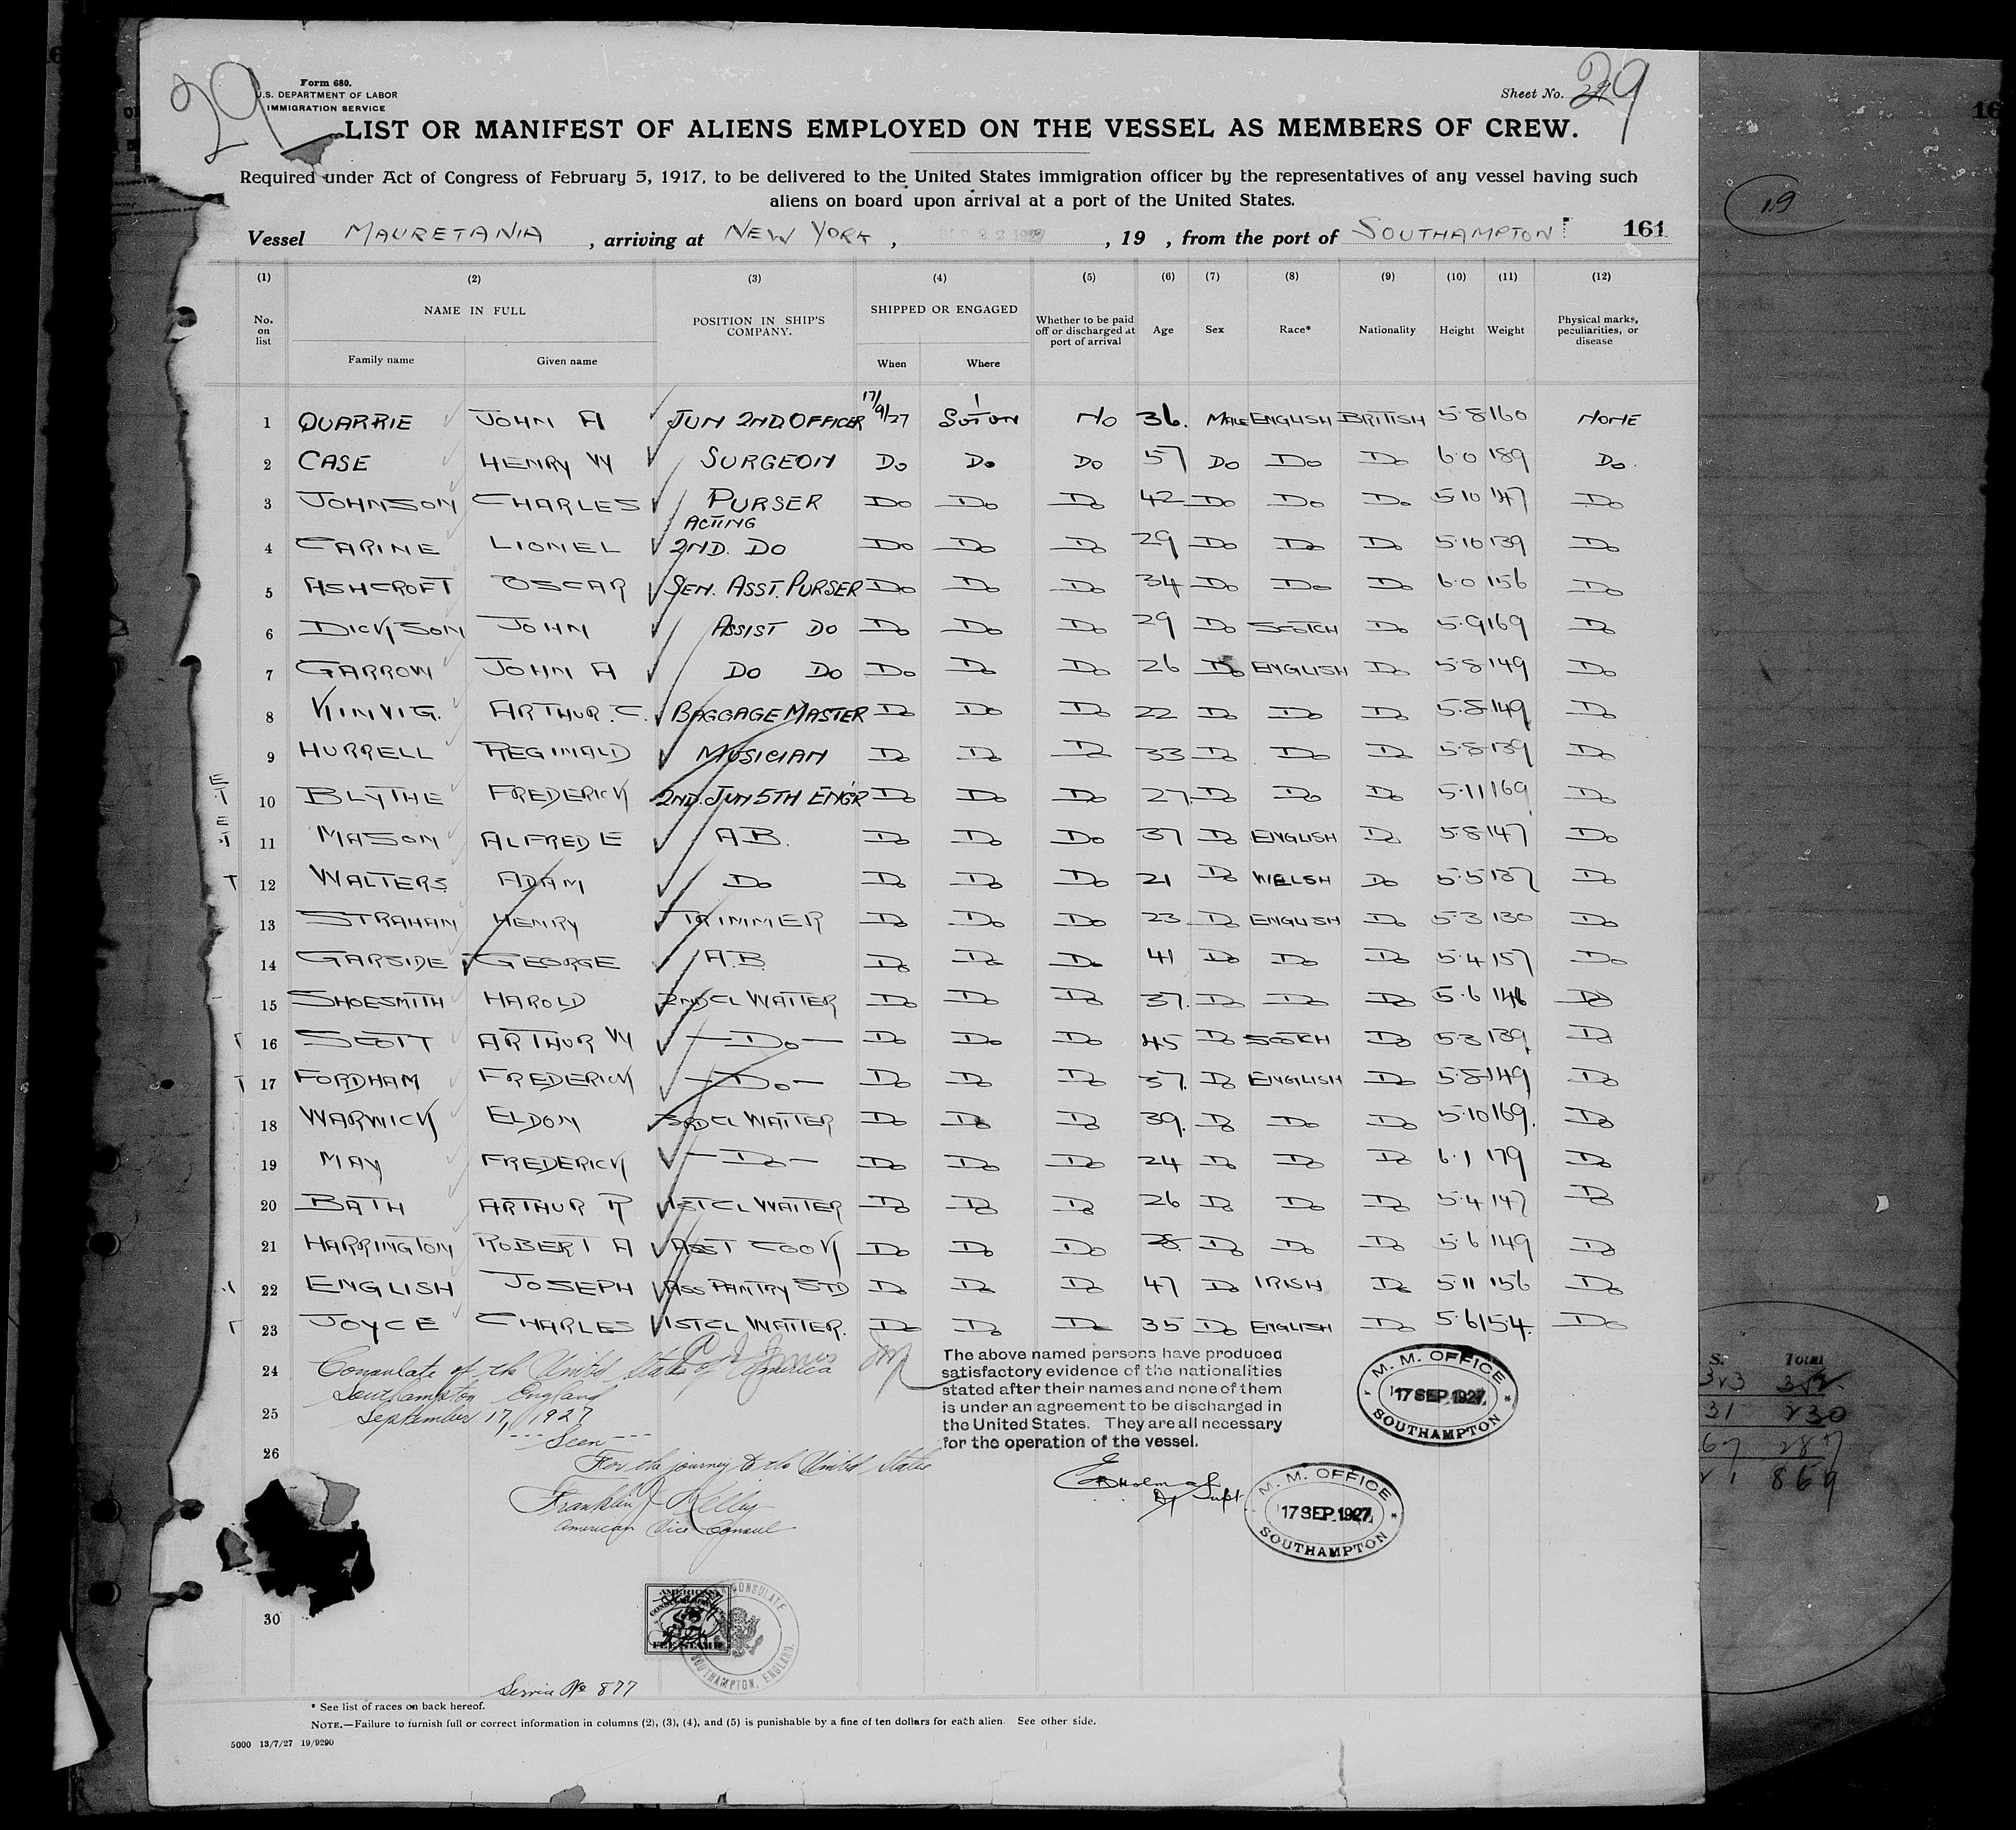 29
Form 680.
U.S. DEPARTMENT OF LABOR
IMMIGRATION SERVICE
Sheet No. 29
LIST OR MANIFEST OF ALIENS EMPLOYED ON THE VESSEL AS MEMBERS OF CREW.
Required under Act of Congress of February 5, 1917, to be delivered to the United States immigration officer by the representatives of any vessel having such
aliens on board upon arrival at a port of the United States.
19
Vessel MAURETANIA, arriving at NEW YORK, 19 , from the port of SOUTHAMPTON 161
(1) (2) (3) (4) (5) (6) (7) (8) (9) (10) (11) (12)
No. on list NAME IN FULL Family name Given name POSITION IN SHIP'S COMPANY. SHIPPED OR ENGAGED When Where Whether to be paid off or discharged at port of arrival Age Sex Race* Nationality Height Weight Physical marks, peculiarities, or disease
1 QUARRIE JOHN A JUN 2ND OFFICER 17/9/27 SOTON NO 36. MALE ENGLISH BRITISH 5·8 160 NONE
2 CASE HENRY W SURGEON DO DO DO 57 DO DO DO 6·0 189 DO.
3 JOHNSON CHARLES PURSER DO DO DO 42 DO DO DO 5·10 147 DO
4 CARINE LIONEL ACTING 2ND. DO DO DO DO 29 DO DO DO 5·10 139 DO
5 ASHCROFT OSCAR SEN. ASST. PURSER DO DO DO 34 DO DO DO 6·0 156 DO
6 DICKSON JOHN ASSIST DO DO DO DO 29 DO SCOTCH DO 5·9 169 DO
7 GARROW JOHN A DO DO DO DO DO 26 DO ENGLISH DO 5·8 149 DO
8 KINVIG. ARTHUR.C. BAGGAGE MASTER DO DO DO 22 DO DO DO 5·8 149 DO
9 HURRELL REGINALD MUSICIAN DO DO DO 33 DO DO DO 5·8 139 DO
10 BLYTHE FREDERICK 2ND. JUN 5TH ENGR DO DO DO 27 DO DO DO 5·11 169 DO
11 MASON ALFRED E A.B. DO DO DO 37 DO ENGLISH DO 5·8 147 DO
12 WALTERS ADAM DO DO DO DO 21 DO WELSH DO 5·5 137 DO
13 STRAHAN HENRY TRIMMER DO DO DO 23 DO ENGLISH DO 5·3 130 DO
14 GARSIDE GEORGE A.B. DO DO DO 41 DO DO DO 5·4 157 DO
15 SHOESMITH HAROLD 2ND CL WAITER DO DO DO 37. DO DO DO 5·6 146 DO
16 SCOTT ARTHUR W DO DO DO DO 45 DO SCOTCH DO 5·3 139 DO
17 FORDHAM FREDERICK DO DO DO DO 37. DO ENGLISH DO 5·8 149 DO
18 WARWICK ELDON 3RD CL WAITER DO DO DO 39. DO DO DO 5·10 169. DO
19 MAY FREDERICK DO DO DO DO 24 DO DO DO 6·1 179 DO
20 BATH ARTHUR R 1ST CL WAITER DO DO DO 26 DO DO DO 5·4 147 DO
21 HARRINGTON ROBERT A ASST COOK DO DO DO 28 DO DO DO 5·6 149 DO
22 ENGLISH JOSEPH ASS PANTRY STD DO DO DO 47 DO IRISH DO 5·11 156 DO
23 JOYCE CHARLES 1ST CL WAITER. DO DO DO 35 DO ENGLISH DO 5·6 154. DO
24
25
26
30
Consulate of the United States of America
Southampton England
September 17, 1927
--- Seen ---
For the journey to the United States
Franklin Kelley
American Vice Consul
The above named persons have produced
satisfactory evidence of the nationalities
stated after their names and none of them
is under an agreement to be discharged in
the United States. They are all necessary
for the operation of the vessel.
Dy Supt
M. M. OFFICE
17 SEP. 1927
SOUTHAMPTON
M. M. OFFICE
17 SEP. 1927
SOUTHAMPTON
AMERICAN
FEE STAMP
CONSULATE
SOUTHAMPTON, ENGLAND.
Service No 877
* See list of races on back hereof.
NOTE.—Failure to furnish full or correct information in columns (2), (3), (4), and (5) is punishable by a fine of ten dollars for each alien. See other side.
5000 13/7/27 19/9290
S. Total
31 230
67 287
869